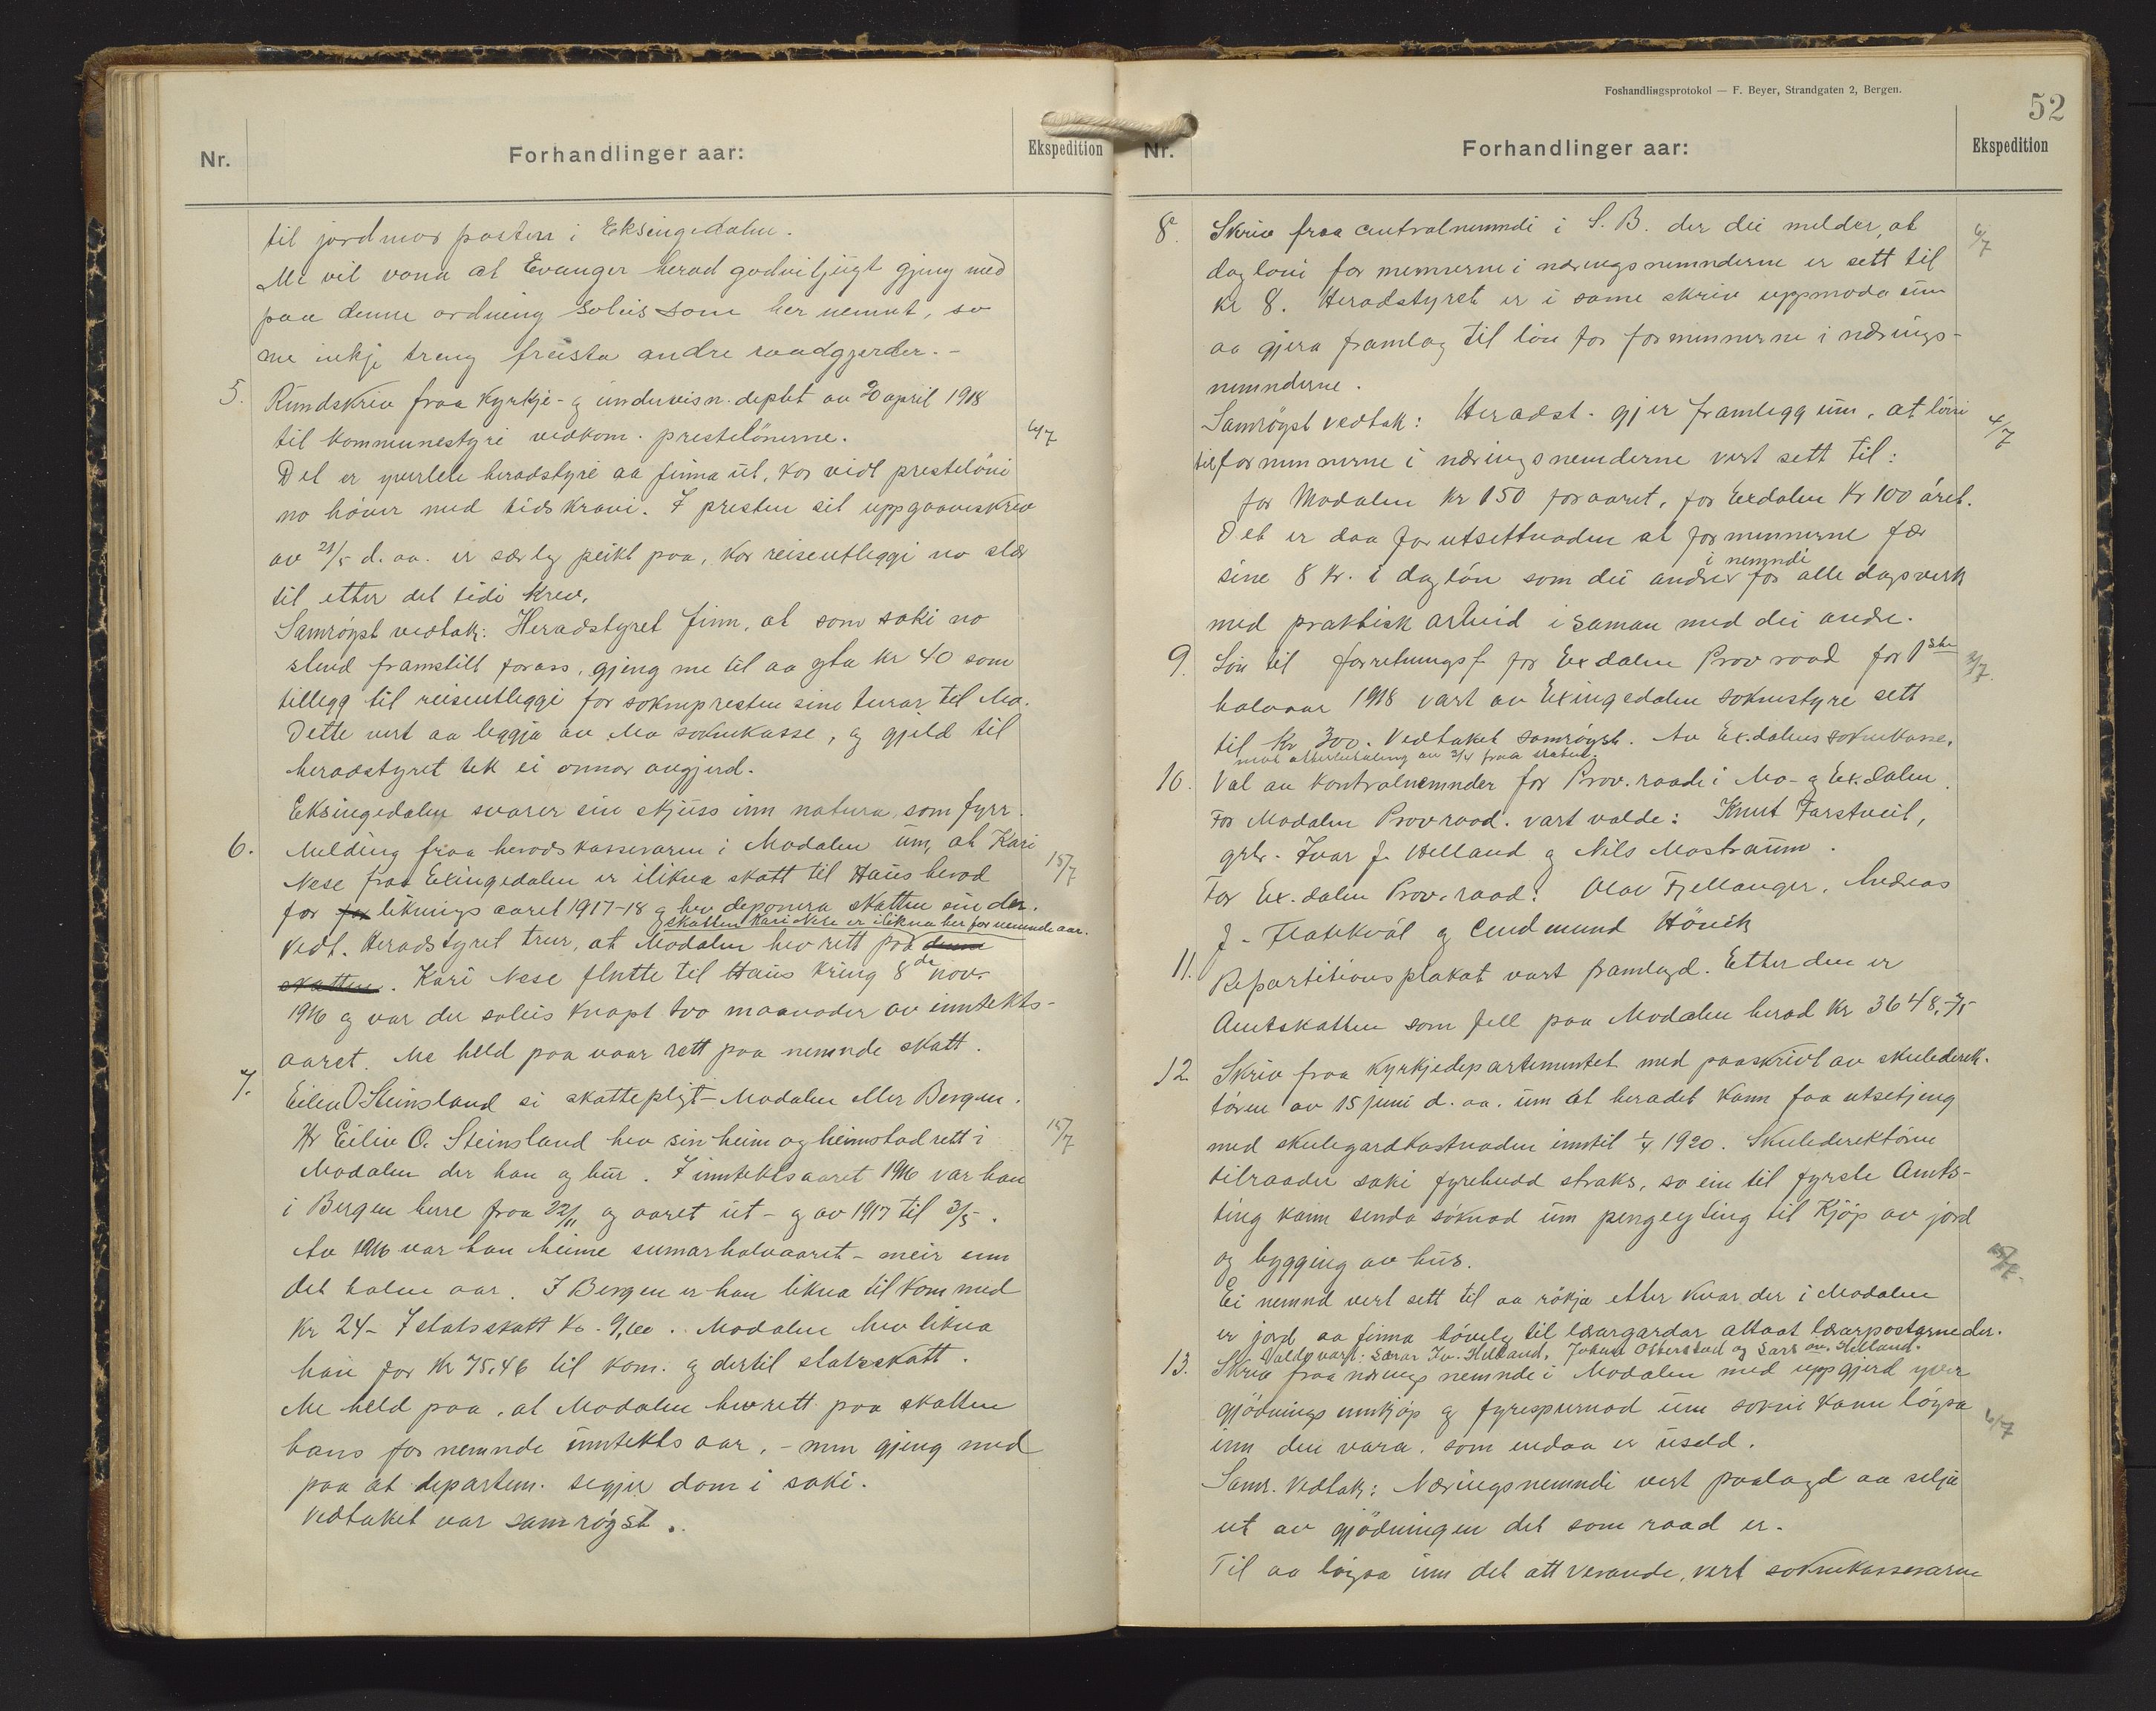 Nr.
Forhandlinger aar:
Ekspedition
til jordmor posten i Eksingedalen.
Me vil vona at Evanger herad godviljugt gjeng med
paa denne ordning soleis som her nemnt, so
me inkje treng freista andre raadgjerder. -
5. Rundskriv fraa Kyrkje- og undervisn. deptet av 20 april 1918
til kommunestyri vedkom. prestelönerne. 4/7
Det er yverlete heradstyre aa finna ut, kor vidt prestelöni
no höver med tidskravi. I presten sit uppgaaveskriv
av 21/5 d. aa. er særleg peikt paa, kor reiseutleggi no slær
til etter det tidi krev.
Samröyst vedtak: Heradstyret finn, at som saki no
stend framstillt for oss, gjeng me til aa yta kr 40 som
tillegg til reiseutleggi for soknepresten sine turar til Mo.
Dette vert aa leggja av Mo soknekasse, og gjeld til
heradstyret tek ei onnor avgjerd.
Eksingedalen svarer sin skjuss inn natura, som fyrr.
6. Melding fraa heradskasseraren i Modalen um, at Kari
Nese fraa Exingedalen er ilikna skatt til Haus herad 15/7
for likningsaaret 1917-18 og hev deponera skatten sin der.
skatten Kari Nese er ilikna her for nemnde aar.
Vedt. Heradstyret trur, at Modalen hev rett paa denne
skatten. Kari Nese flutte til Haus kring 8de nov.
1916 og var der soleis knapt two maanader av inntekts-
aaret. Me held paa vaar rett paa nemnde skatt.
7. Eiliv O Steinsland si skattepligt - Modalen eller Bergen.
Hr Eiliv O. Steinsland hev sin heim og heimstadrett i 15/7
Modalen der han og bur. I inntektsaaret 1916 var han
i Bergen berre fraa 22/11 og aaret ut - og av 1917 til 3/5.
Av 1916 var han heime sumarhalvaaret - meir enn
det halve aar. I Bergen er han likna til kom med
Kr 24 - I statsskatt Kr. 9,00. Modalen hev likna
han for Kr 75,46 til kom. og dertil statsskatt.
Me held paa, at Modalen hev rett paa skatten
hans for nemnde inntekts aar, - men gjeng med
paa at departem. segjer dom i saki.
Vedtaket var samröyst.
Foshandlingsprotokol — F. Beyer, Strandgaten 2, Bergen.
52
Nr.
Forhandlinger aar:
Ekspedition
8. Skriv fraa centralnemndi i S. B. der dei melder, at 4/7
dagloni for mennerne i næringsnemnderne er sett til
kr 8. Heradstyret er i same skriv uppmoda um
aa gjera framlag til lön for formennerne i nærings-
nemnderne.
Samröyst vedtak: Heradst. gjer framlegg um, at löni 4/7
til formennerne i næringsnemderne vert sett til:
for Modalen Kr 150 for aaret, for Exdalen Kr 100 året.
Det er daa forutsettnaden at formennerne fær
i nemndi
sine 8 kr. i daglön som dei andre for alle dagsverk
med praktisk arbeid i saman med dei andre.
9. Lön til forretningsf. for Exdalen Prov raad for 1ste 3/7.
halvaar 1918 vart av Exingedalen soknestyre sett
til Kr 300. Vedtaket samröyst. Av Ex.dalens soknekasse,
mot atterbetaling av 3/4 fraa staten.
10. Val av kontrolnemnder for Prov. raadi i Mo- og Ex.dalen.
For Modalen Provraad. vart valde: Knut Farstveit,
grbr. Ivar J. Helland og Nils Mostraum.
For Ex.dalen Prov.raad: Olav Fjellanger, Andreas
J. Flatekvål og Gudmund Høvik
11. Repartitionsplakat vart framlagd. Etter den er
Amtskatten som fell paa Modalen herad Kr 3648,75
12 Skriv fraa Kyrkjedepartementet med paaskrivt av skulederek-
tören av 15 juni d. aa. um at heradet kann faa utsetjing
med skulegardkostnaden inntil 1/4 1920. Skulederektören
tilraader saki fyrebudd straks, so ein til fyrste Amts-
ting kann senda söknad um pengeyting til kjöp av jord
og bygging av hus. 15/7.
Ei nemnd vert sett til aa rökja etter kvar der i Modalen
er jord aa finna hövely til lærargardar attaat lærarpostarne der.
Valde vart: Lærar Iv. Helland, Johans Otterstad og Lars on. Helland.
13. Skriv fraa nærings nemnde i Modalen med uppgjerd yver
gjödnings innkjöp og fyrespurnad um sokni kann löysa 4/7
inn den vara, som endaa er useld.
Samr. Vedtak: Næringsnemndi vert paalagd aa selja
ut av gjödningen det som raad er.
Til aa löysa inn det att verande, vert soknekasseraren